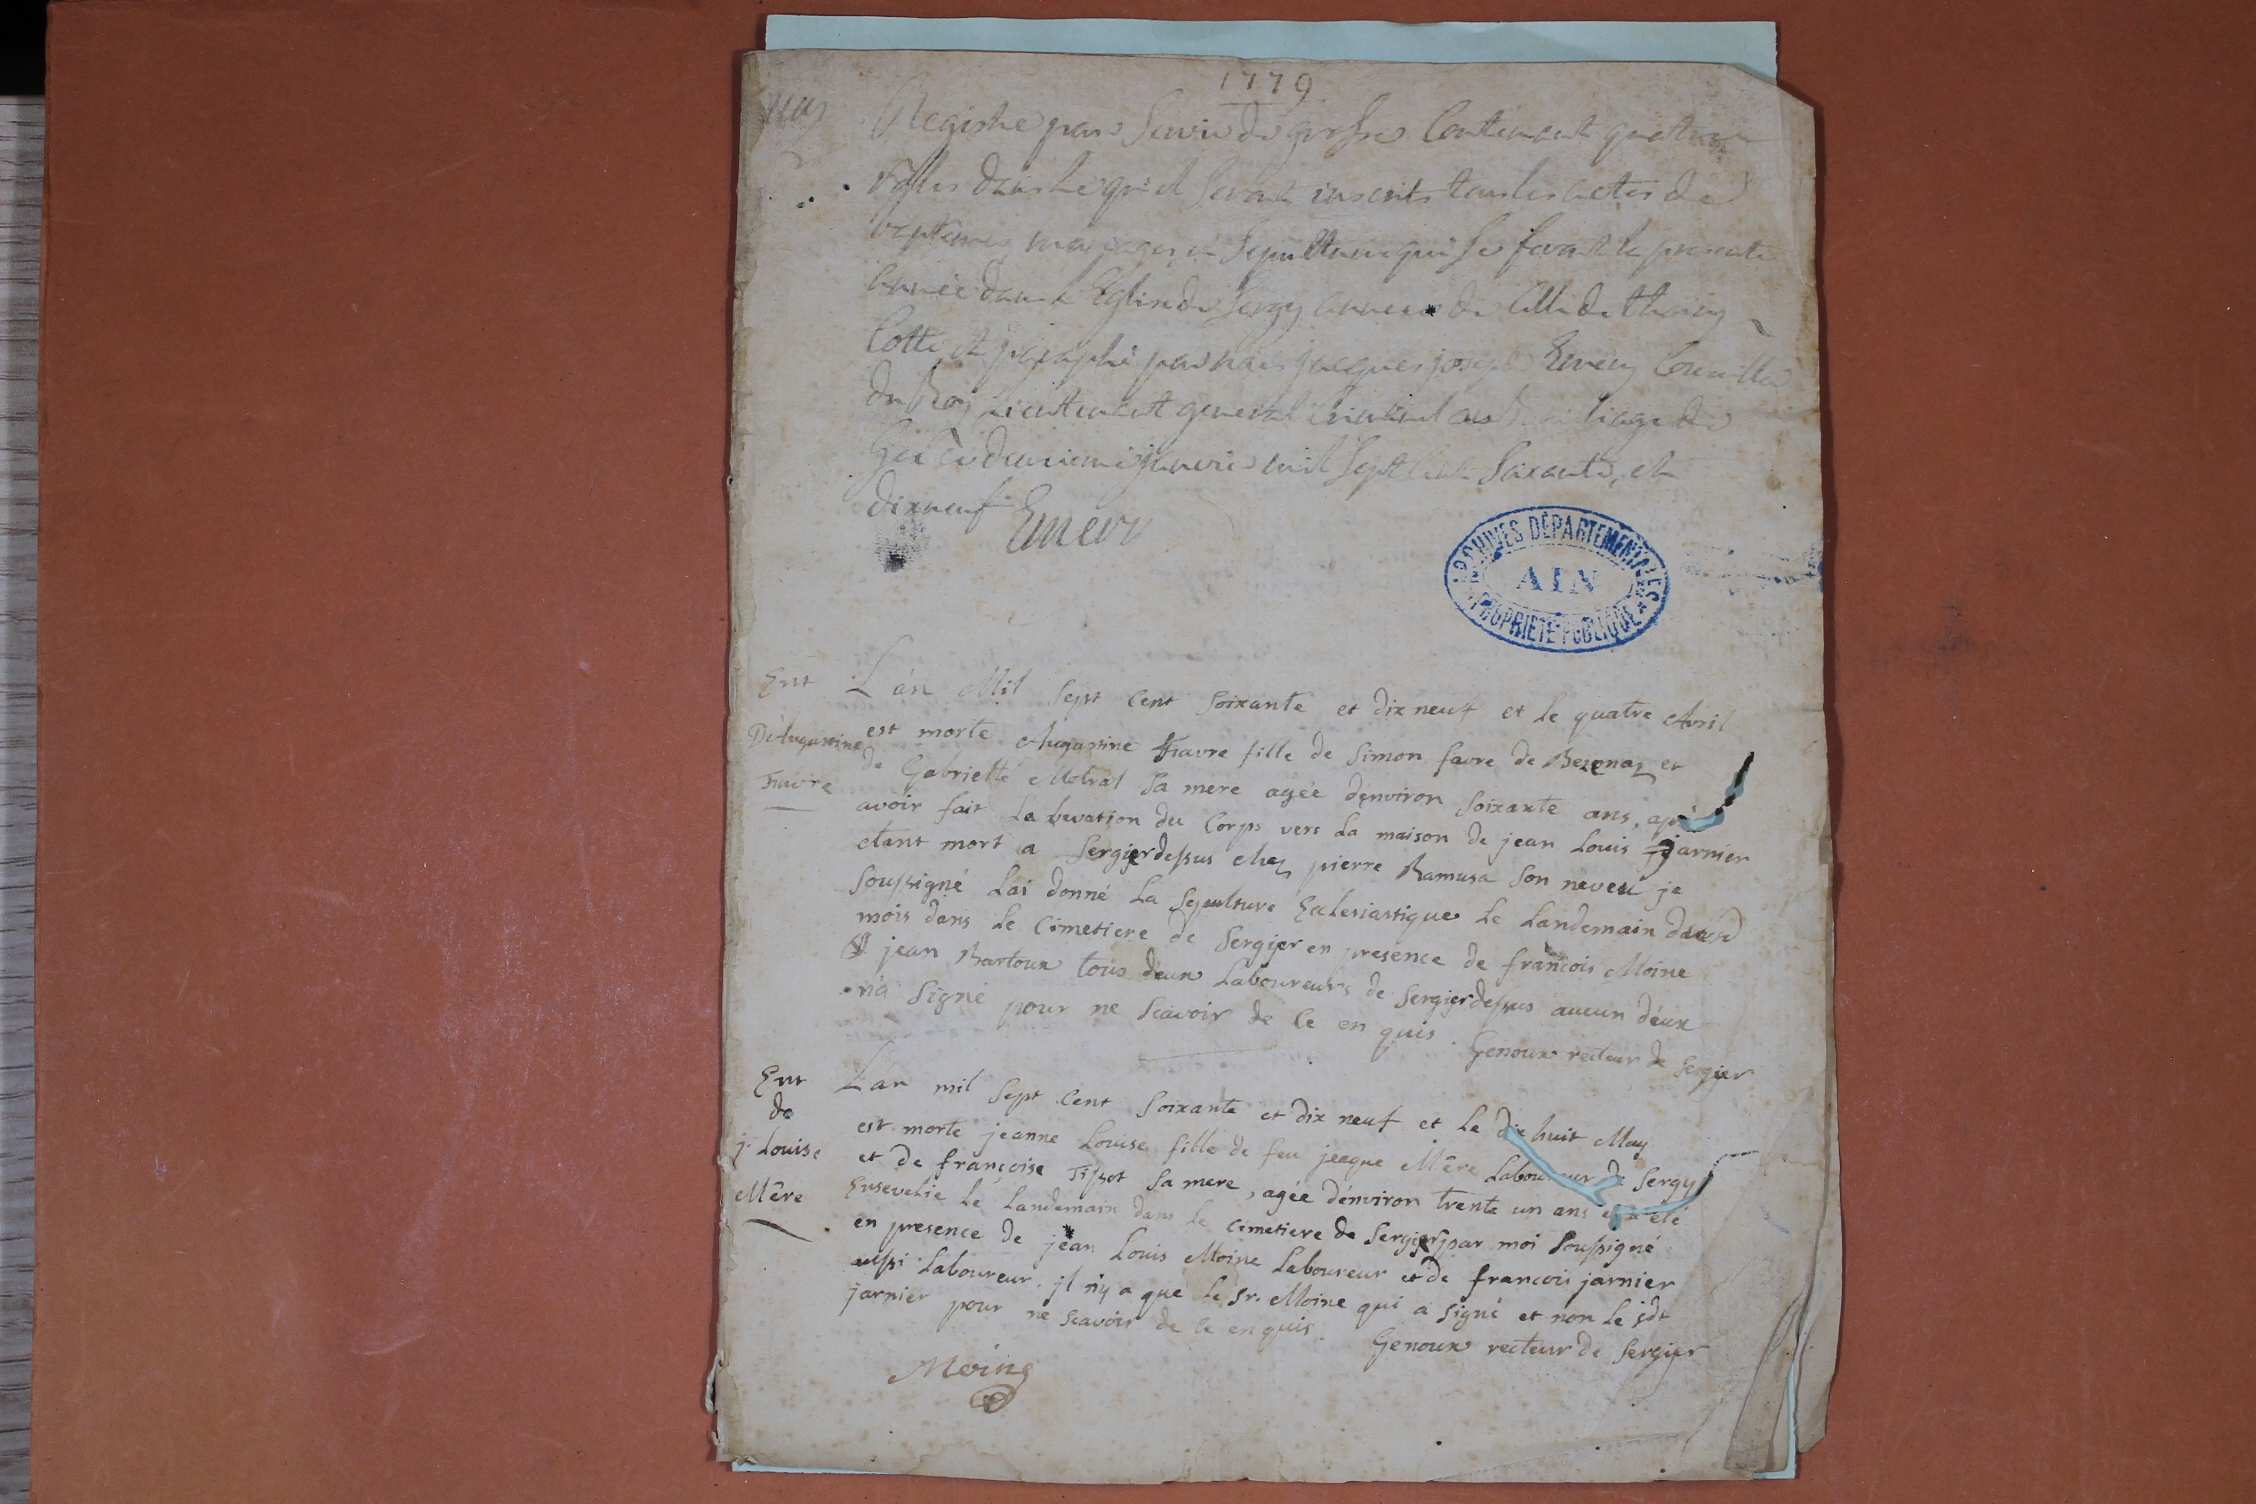 1779
Registre pour servir de grosse contenant quatre
rolles dans lequel seront inscrits tous les actes de
baptemes mariages et sepultures qui se feront la presente
année dans l'Eglise de Sergy annexe de celle de Thoiry
Cotté et paraphé par nous jacques joseph Emery Conseiller
du Roy Lieutenant general criminel au Bailliage de
Gex ce deuxieme janvier mil sept cent soixante et
dixneuf Emery
ARCHIVES DÉPARTEMENTALES
AIN
PROPRIÉTÉ PUBLIQUE
Ent
D'Augustine
Favre
L'an Mil sept cent soixante et dix neuf et le quatre Avril
est morte Augustine Favre fille de Simon favre de et
de Gabrielle Motral sa mere agée d'environ soixante ans,
avoir fait la levation du Corps vers la maison de jean Louis jarnier
etant mort a Sergierdessus chez pierre Ramusa son neveu je
soussigné lai donné la sepulture Ecclesiastique le landemain dud
mois dans le Cimetiere de Sergier en presence de francois Moine
& jean Bartoux tous deux Laboureurs de Sergierdessus aucun d'eux
n'a signé pour ne scavoir de ce en quis. Genoux recteur de Sergier
Ent
de
j. Louise
Mêre
L'an mil sept cent soixante et dix neuf et le dix huit May
est morte jeanne Louise fille de feu jacque Mêre Laboureur de Sergy
et de françoise Tissot sa mere, agée d'environ trente un ans et a été
Ensevelie le landemain dans le cimetiere de Sergier par moi soussigné
en presence de jean Louis Moine Laboureur et de francois jarnier
aussi Laboureur. jl n'y a que le Sr. Moine qui a signé et non le sdt
jarnier pour ne scavoir de ce enquis. Genoux recteur de Sergier
Moine